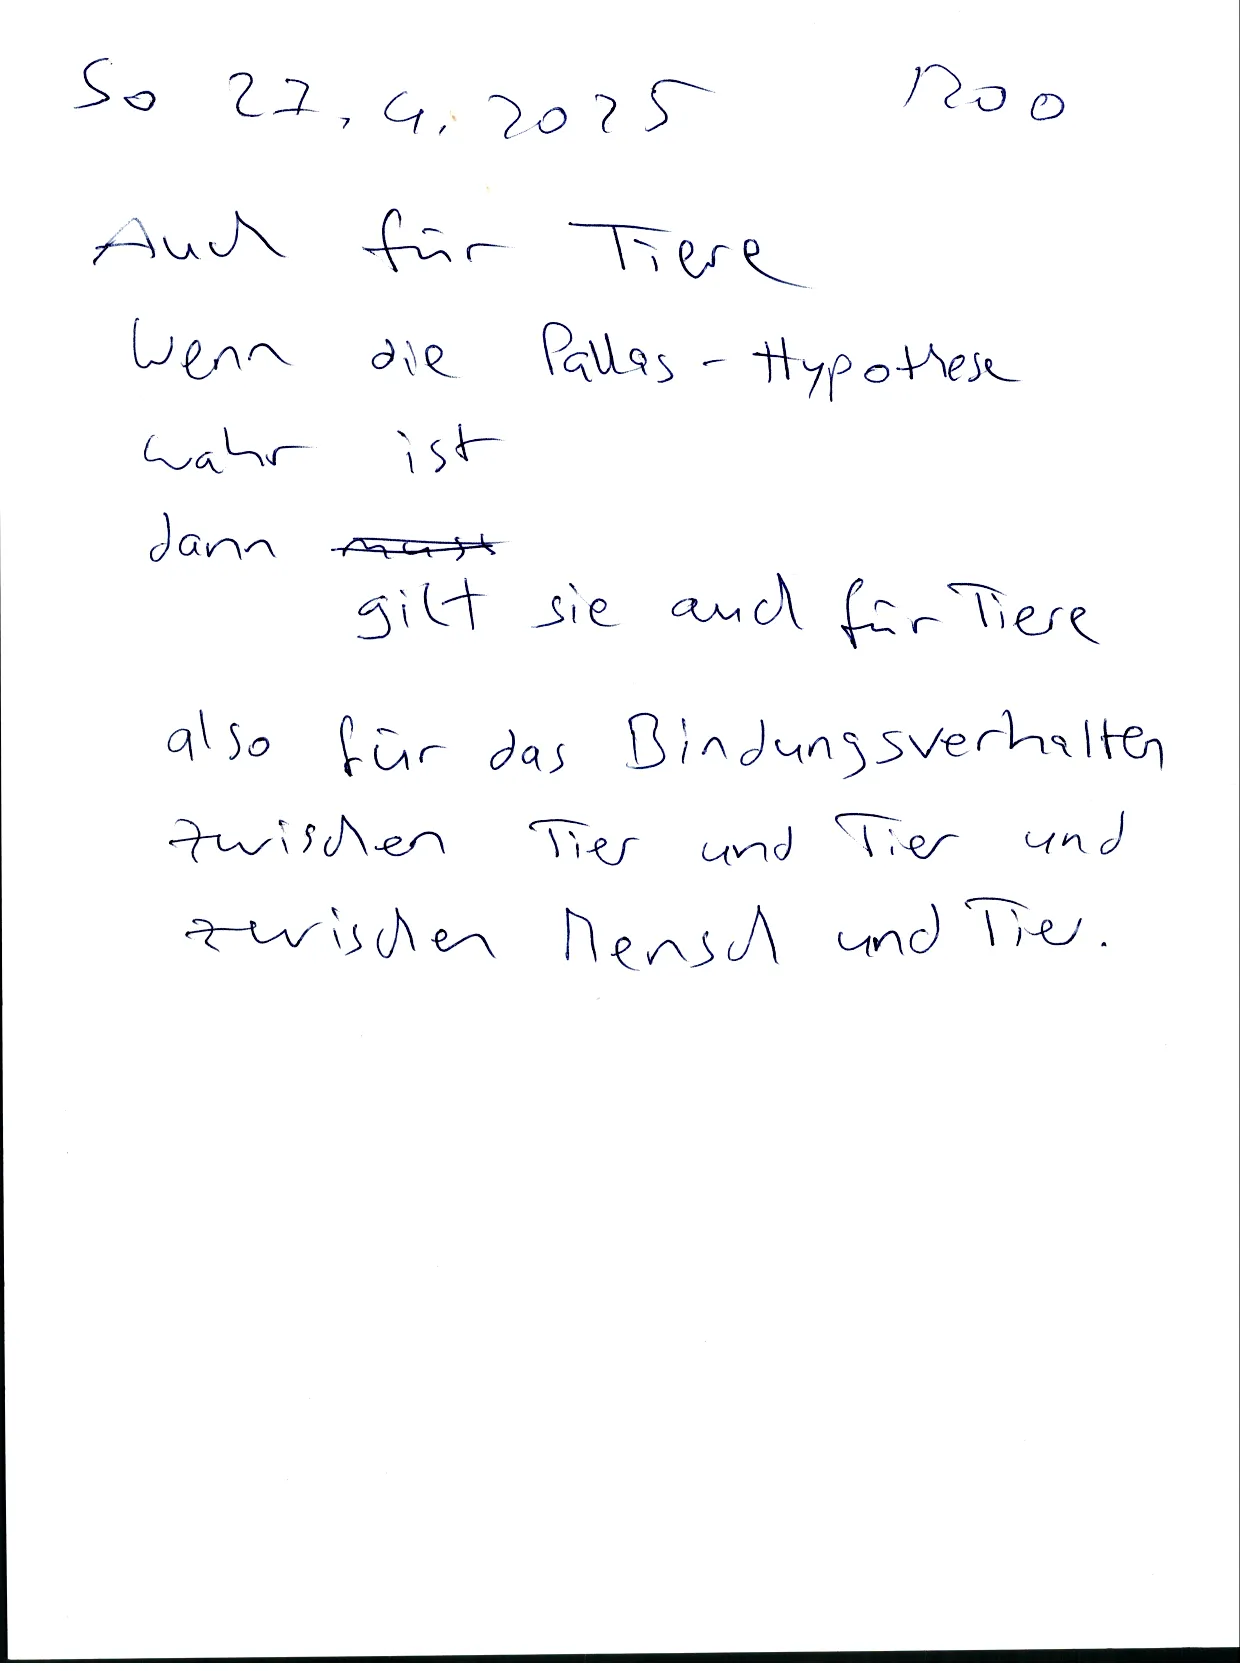 So 27.4.2025 1200
Auch für Tiere
Wenn die Pallas-Hypothese
wahr ist
dann
gilt sie auch für Tiere
also für das Bindungsverhalten
zwischen Tier und Tier und
zwischen Mensch und Tier.